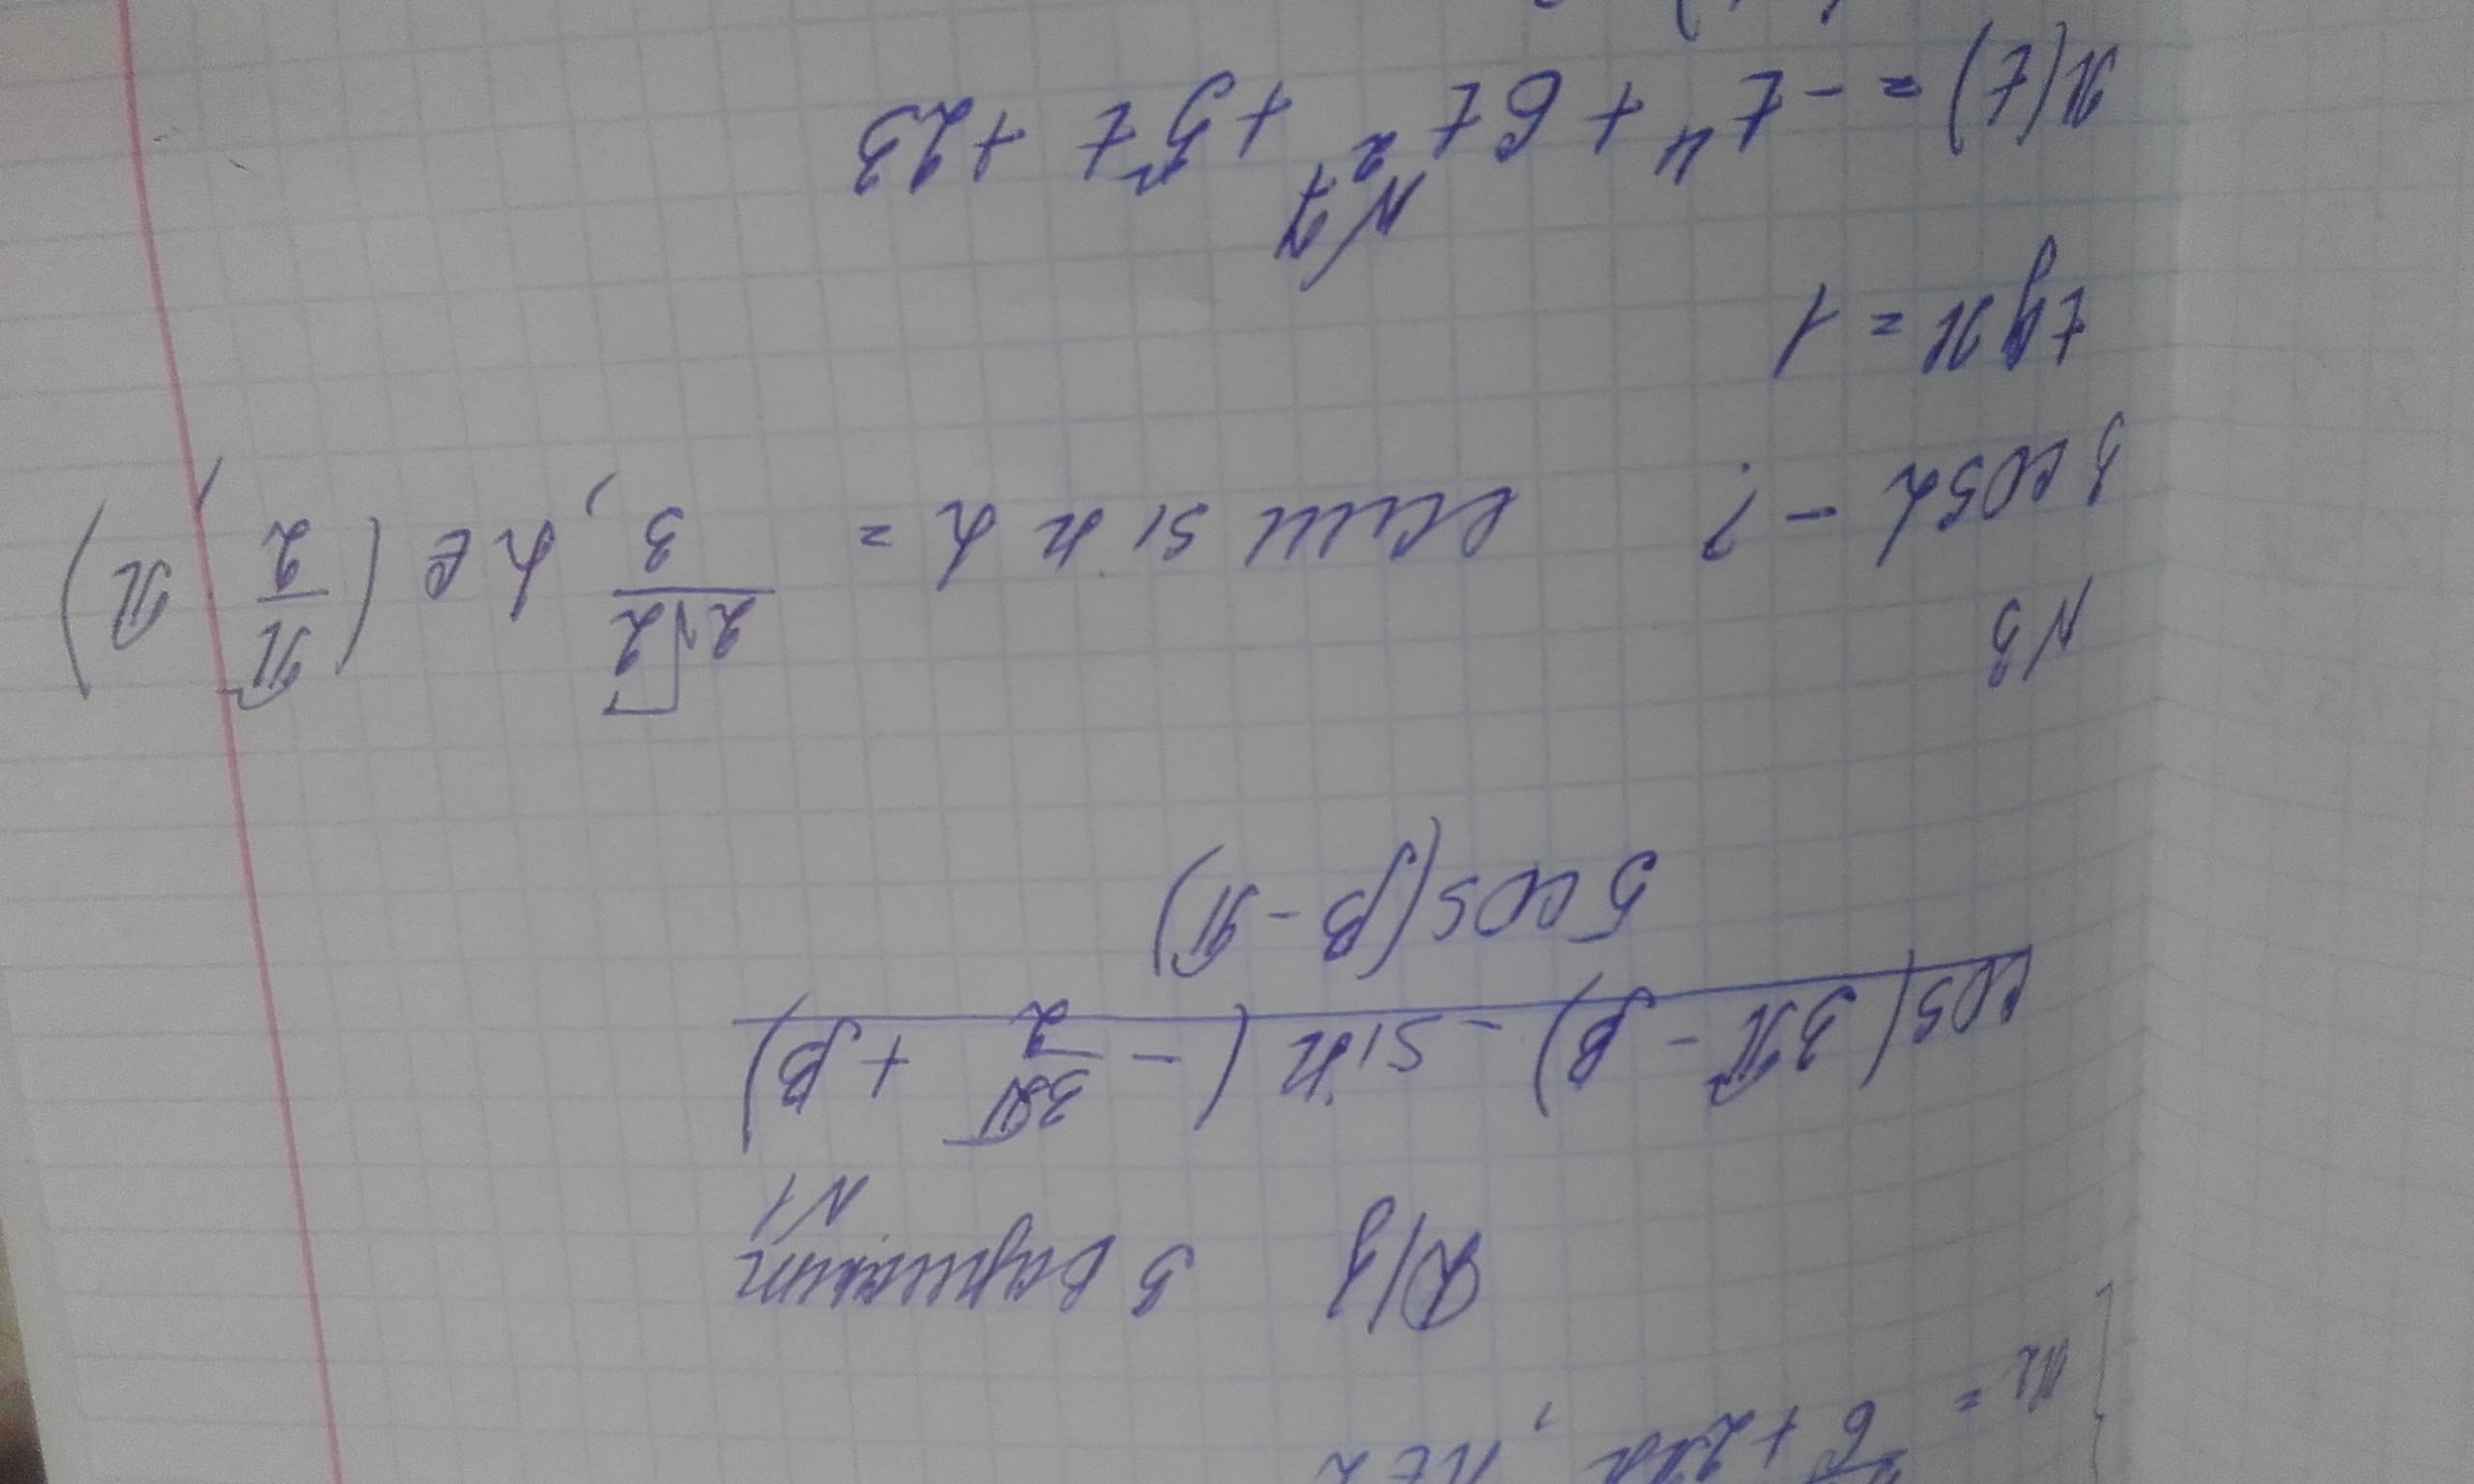 x₂ = π/6 + 2πn, n ∈ Z
Д/з 3 вариант
N1
cos(3π - β) - sin(-3π/2 + β)
5cos(β - π)
N3
3cosα - ? если sin α = 2√2/3, α ∈ (π/2, π)
tg x = 1
N7
x(t) = -t⁴ + 6t² + 5t + 23